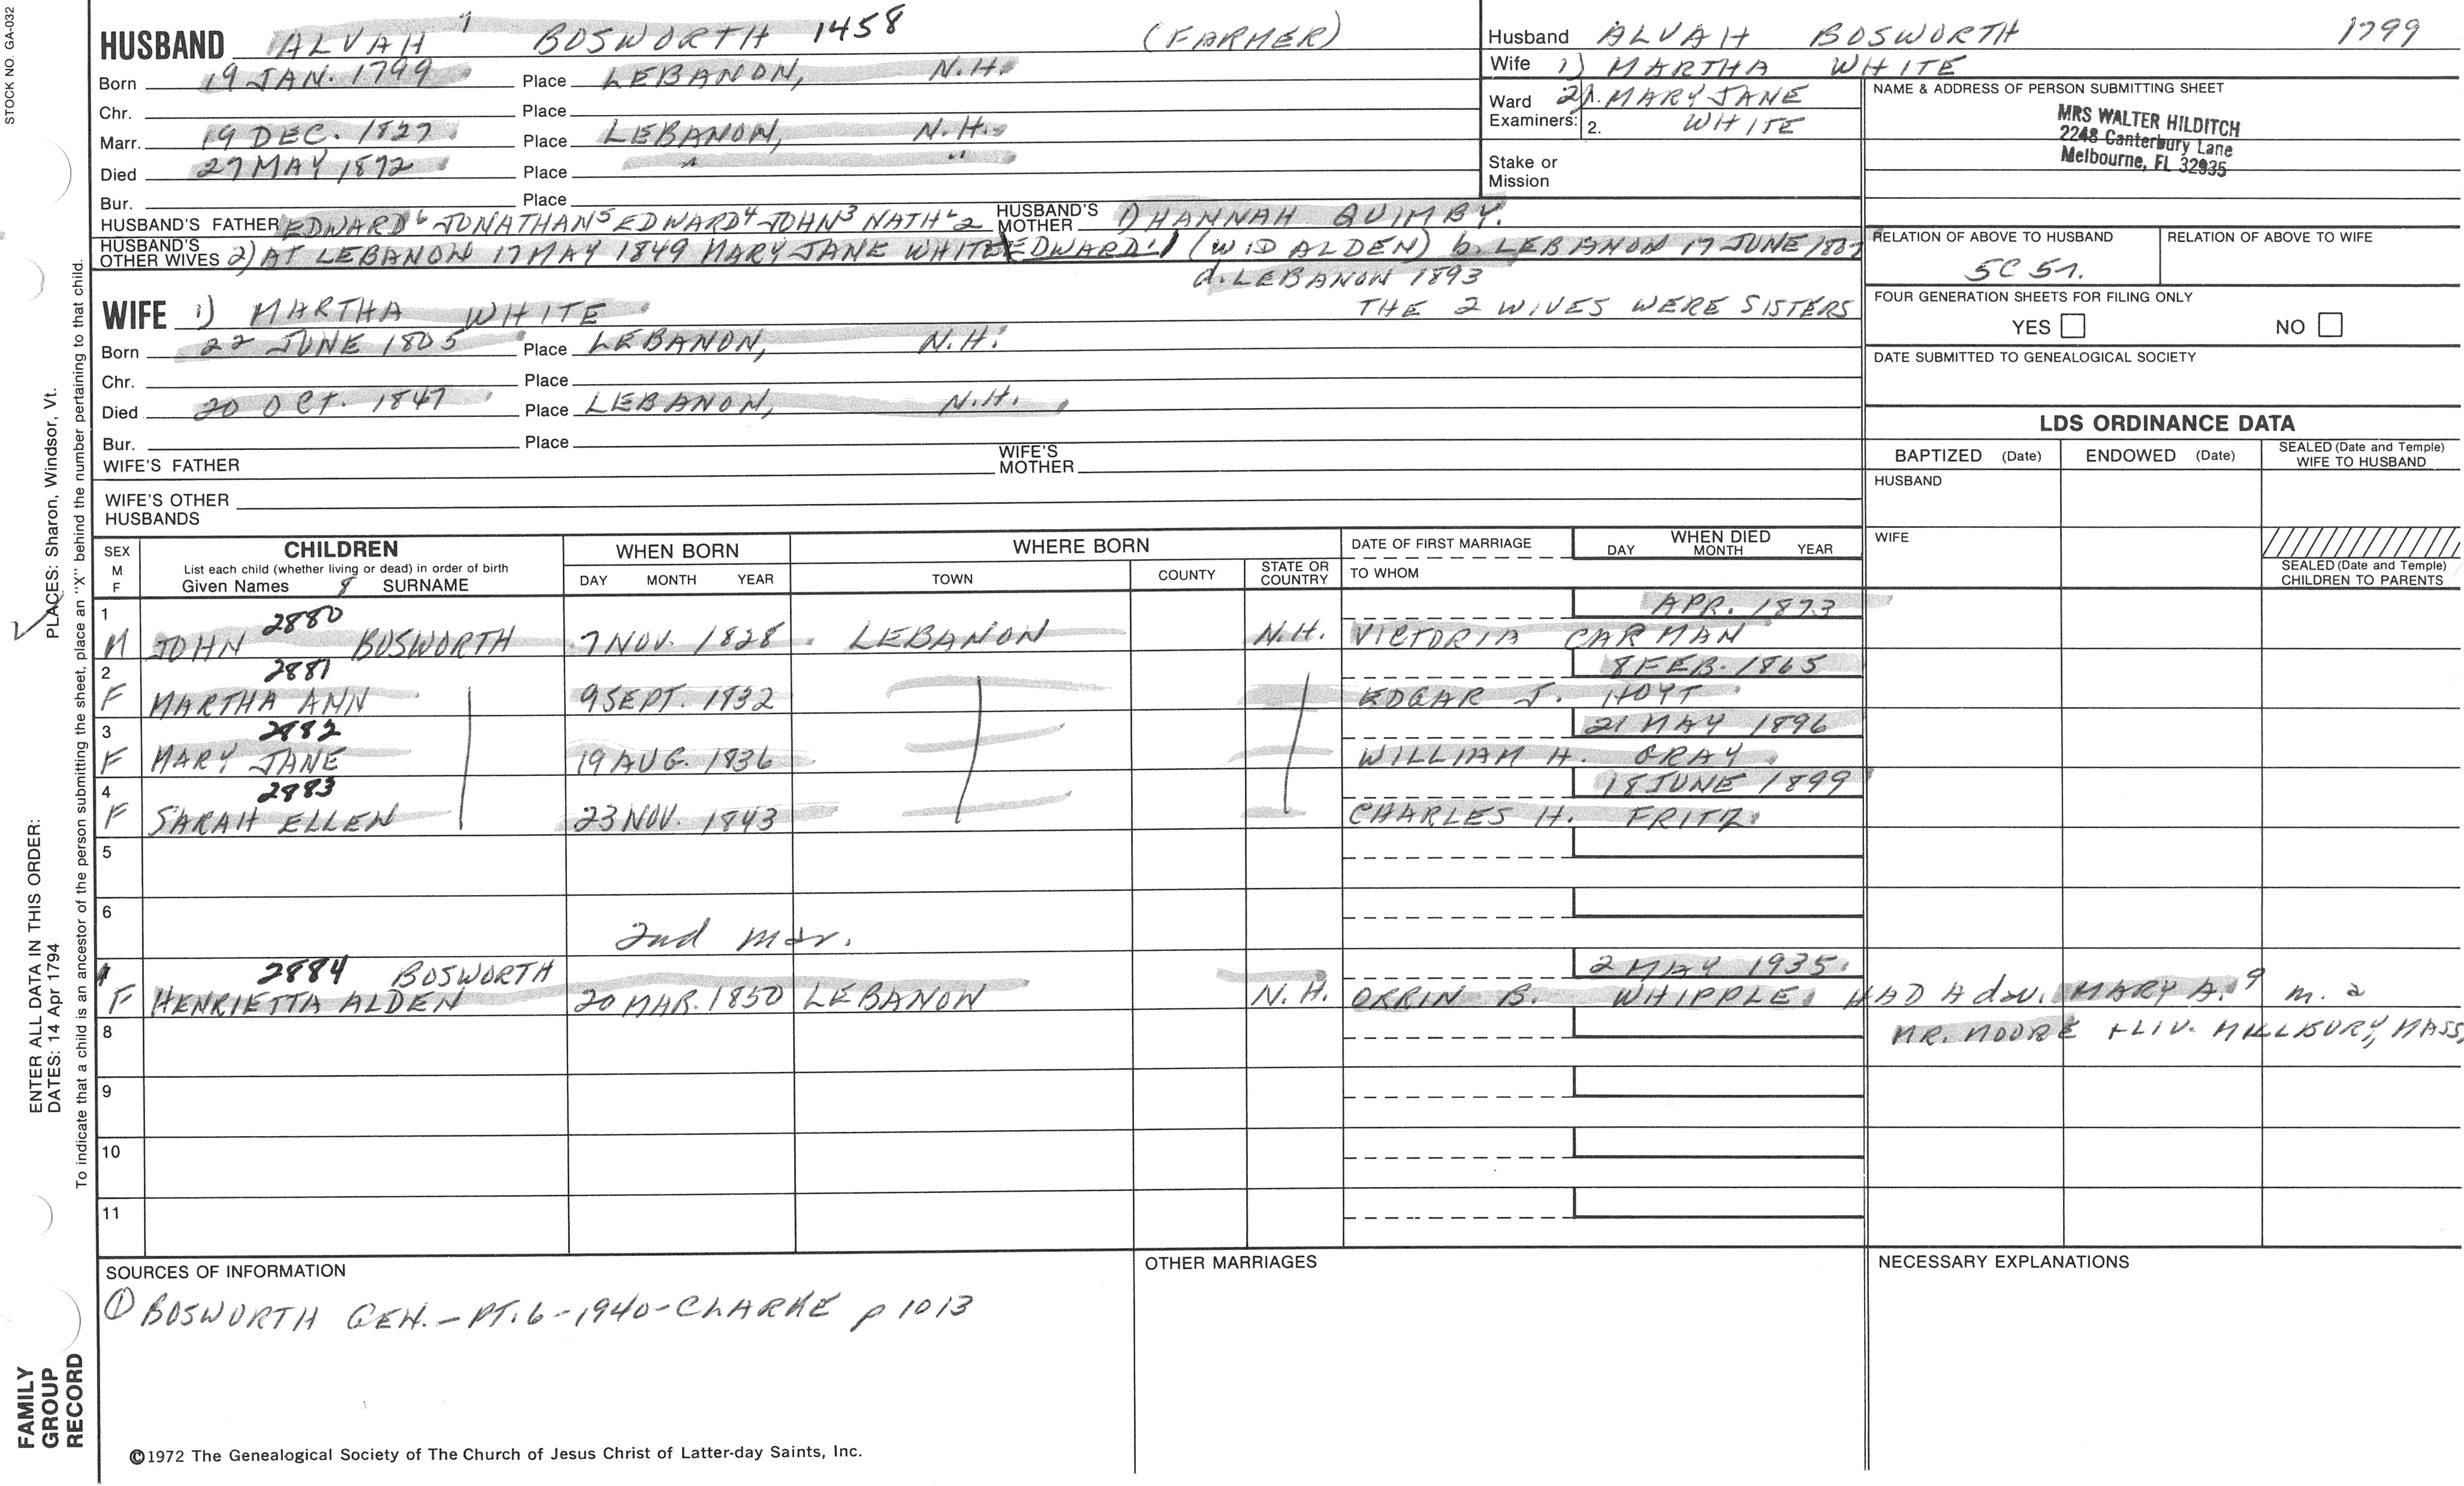 STOCK NO. GA-032
HUSBAND ALVAH 7 BOSWORTH 1458 (FARMER)
Born 19 JAN. 1799 Place LEBANON, N.H.
Chr. Place
Marr. 19 DEC. 1827 Place LEBANON, N.H.
Died 27 MAY 1872 Place " "
Bur. Place
HUSBAND'S FATHER EDWARD6 JONATHAN5 EDWARD4 JOHN3 NATHL2 HUSBAND'S MOTHER 1) HANNAH QUIMBY.
HUSBAND'S OTHER WIVES 2) AT LEBANON 17 MAY 1849 MARY JANE WHITE EDWARD1 (WID ALDEN) b. LEBANON 17 JUNE
d. LEBANON 1893
THE 2 WIVES WERE SISTERS
WIFE 1) MARTHA WHITE
Born 22 JUNE 1805 Place LEBANON, N.H.
Chr. Place
Died 20 OCT. 1847 Place LEBANON, N.H.
Bur. Place
WIFE'S FATHER WIFE'S MOTHER
WIFE'S OTHER HUSBANDS
Husband ALVAH BOSWORTH 1799
Wife 1) MARTHA WHITE
Ward Examiners: 2) 1. MARY JANE
2. WHITE
Stake or Mission
NAME & ADDRESS OF PERSON SUBMITTING SHEET
MRS WALTER HILDITCH
2248 Canterbury Lane
Melbourne, FL 32935
RELATION OF ABOVE TO HUSBAND RELATION OF ABOVE TO WIFE
5C 5r.
FOUR GENERATION SHEETS FOR FILING ONLY
YES NO
DATE SUBMITTED TO GENEALOGICAL SOCIETY
LDS ORDINANCE DATA
BAPTIZED (Date) ENDOWED (Date) SEALED (Date and Temple) WIFE TO HUSBAND
HUSBAND
WIFE
SEALED (Date and Temple) CHILDREN TO PARENTS
SEX M F CHILDREN WHEN BORN WHERE BORN DATE OF FIRST MARRIAGE WHEN DIED
List each child (whether living or dead) in order of birth
Given Names 8 SURNAME DAY MONTH YEAR TOWN COUNTY STATE OR COUNTRY TO WHOM DAY MONTH YEAR
1 2880 APR. 1873
M JOHN BOSWORTH 7 NOV. 1828 LEBANON N.H. VICTORIA CARMAN
2 2881 8 FEB. 1865
F MARTHA ANN 9 SEPT. 1832 EDGAR J. HOYT
3 2882 21 MAY 1896
F MARY JANE 19 AUG. 1836 WILLIAM H. GRAY
4 2883 18 JUNE 1899
F SARAH ELLEN 23 NOV. 1843 CHARLES H. FRITZ
5
6
2nd mar.
2884 BOSWORTH 2 MAY 1935
F HENRIETTA ALDEN 20 MAR. 1850 LEBANON N.H. ORRIN B. WHIPPLE, HAD A dau. MARY A.9 m. a
8 MR. MOORE + LIV. MILLBURY, MASS.
9
10
11
SOURCES OF INFORMATION OTHER MARRIAGES NECESSARY EXPLANATIONS
① BOSWORTH GEN. - PT. 6 - 1940 - CLARKE p 1013
©1972 The Genealogical Society of The Church of Jesus Christ of Latter-day Saints, Inc.
FAMILY GROUP RECORD
ENTER ALL DATA IN THIS ORDER:
DATES: 14 Apr 1794
PLACES: Sharon, Windsor, Vt.
To indicate that a child is an ancestor of the person submitting the sheet, place an "X" behind the number pertaining to that child.